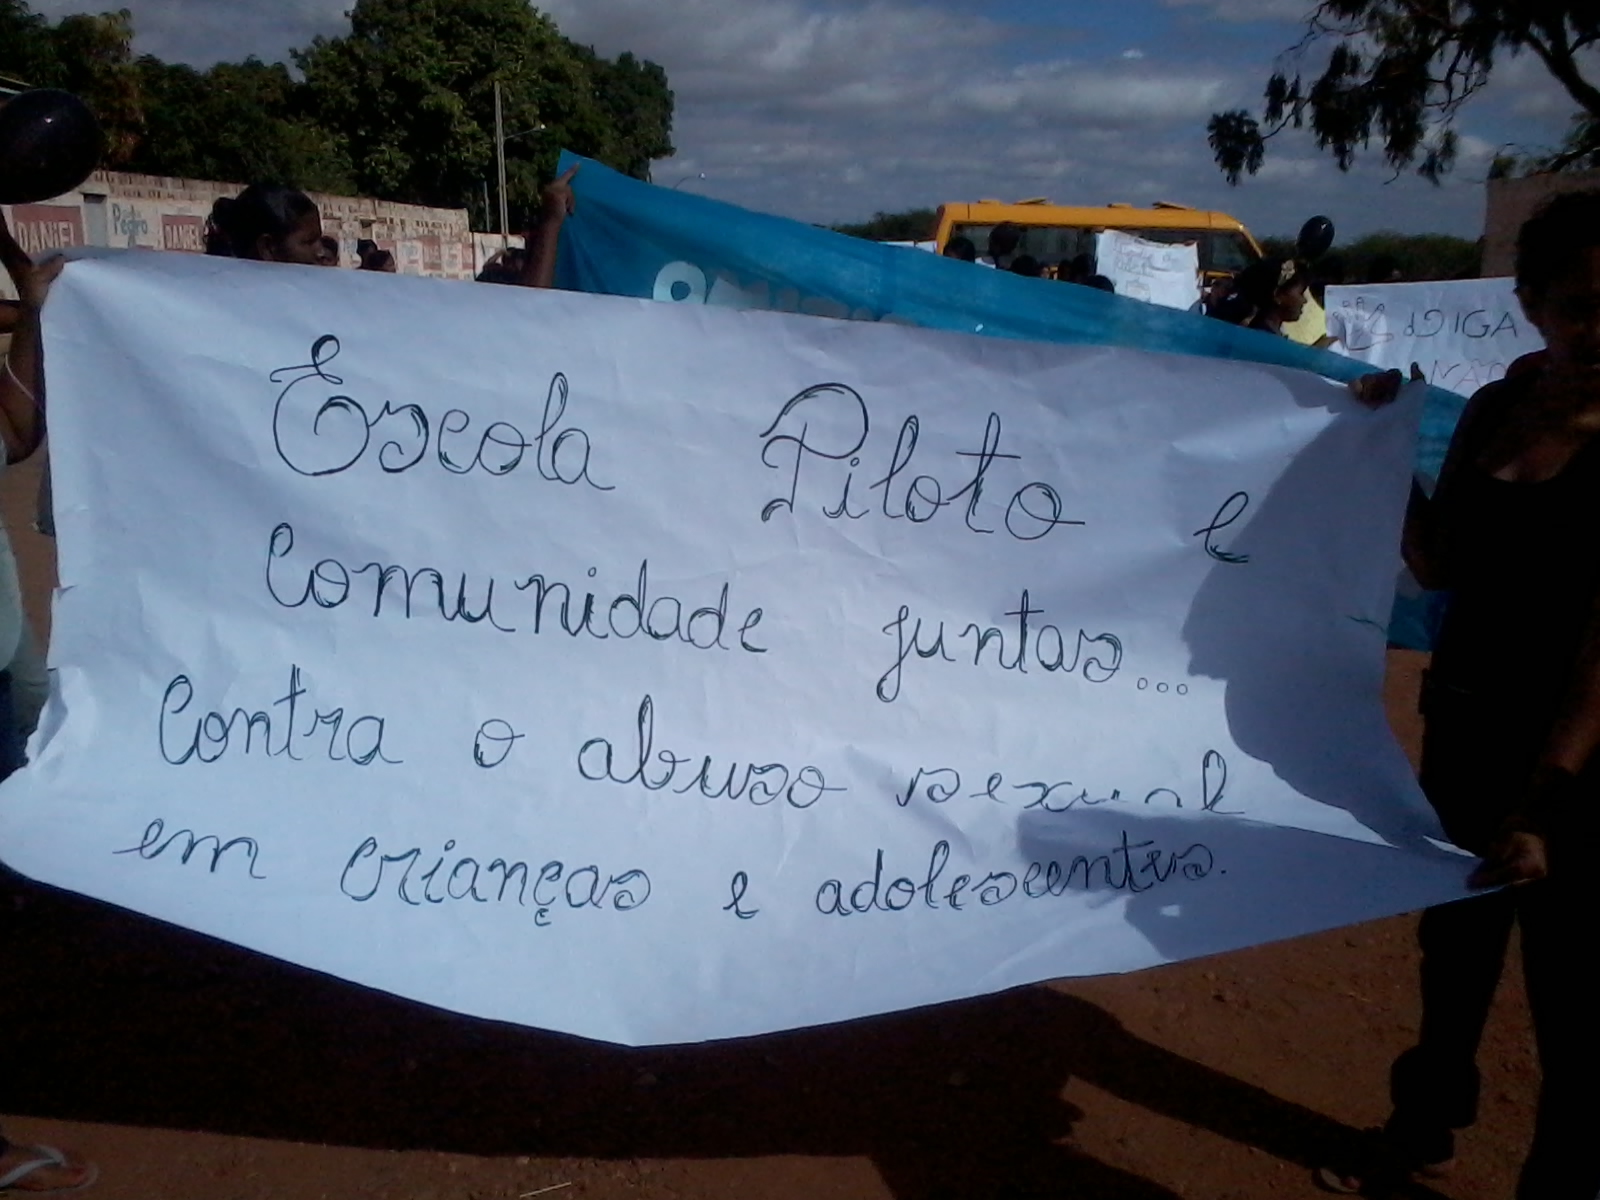 DANiEL
Pedro
DANiEL
DIGA
NÃO
Escola Piloto e
Comunidade juntas...
Contra o abuso sexual
em crianças e adolescentes.